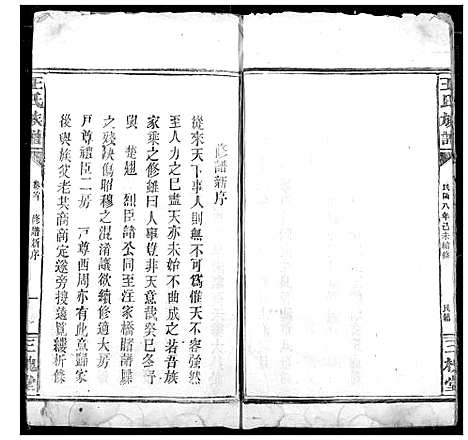 王氏族譜
民國八年己未續修
民籍
三槐堂
修譜新序
從來天下事人則無不可為惟天不容強然
至人力之已盡天亦未始不曲成之若吾族
家乘之修雖曰人謀豈非天意哉癸巳冬予
與 楚翹 烈臣諸公同至汪家橋睹諸牒
之殘缺傷昭穆之混淆議欲續修適大房
戶尊禮臣二房 戶尊酉周亦有此意歸家
後與族父老共商商定遂旁搜遠覽縷析條
王氏族譜
卷首 修譜新序
一
三槐堂